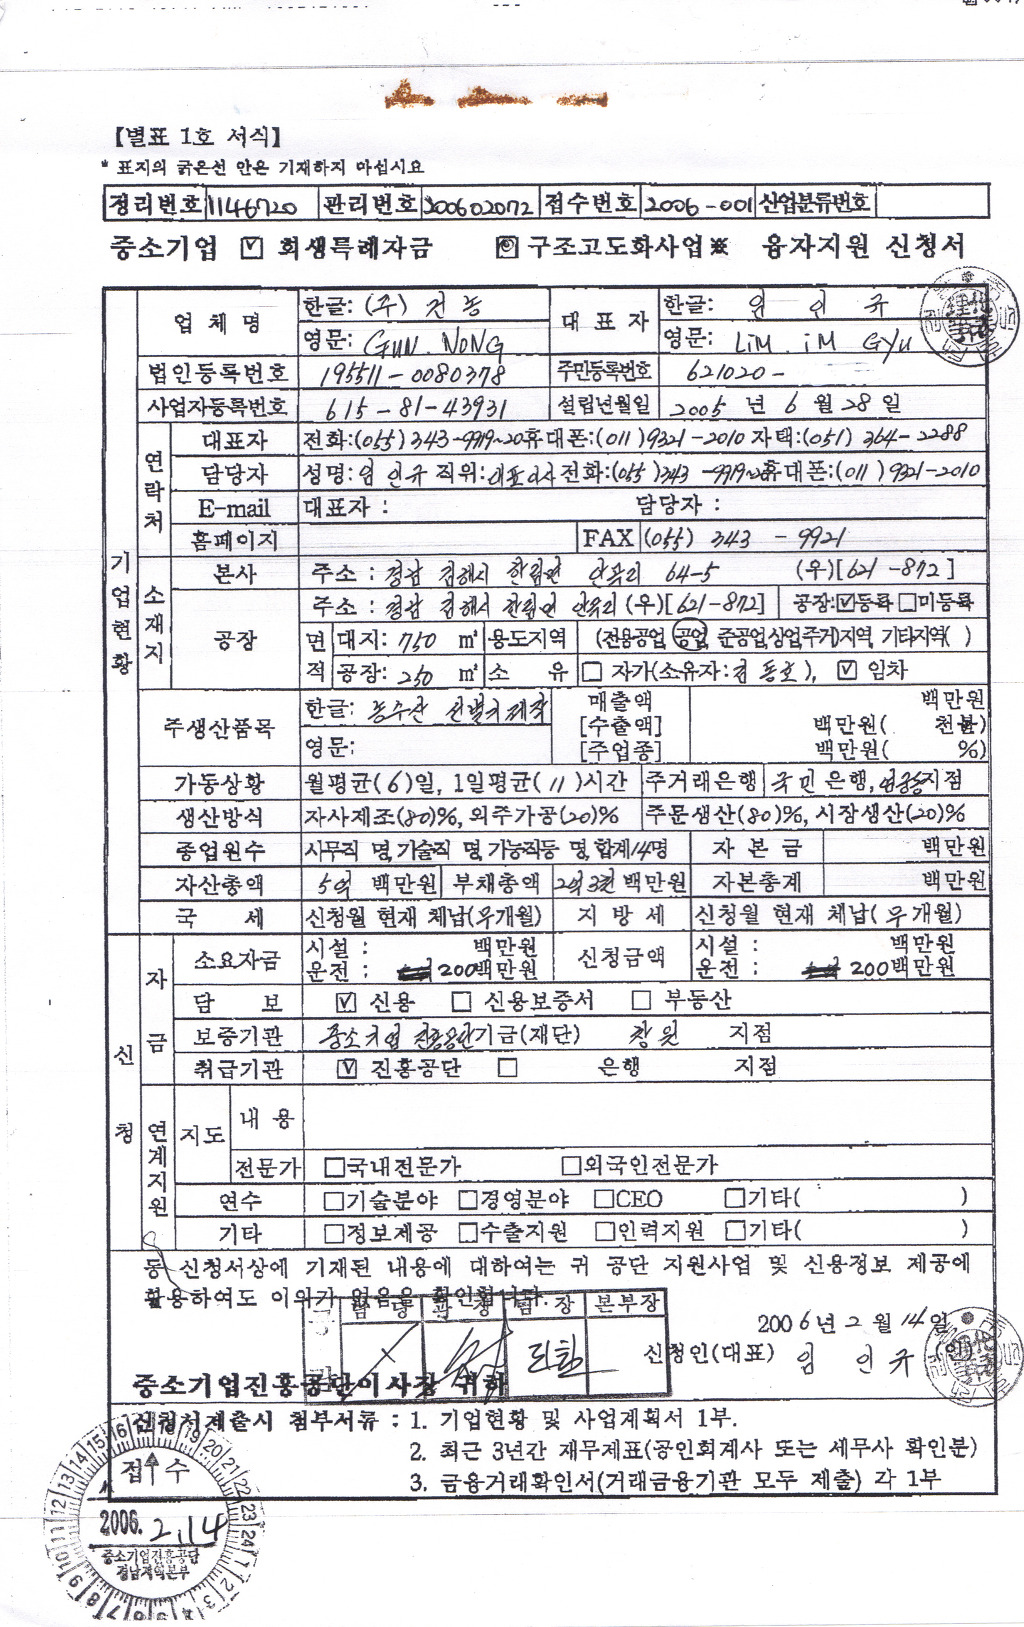 【별표 1호 서식】
* 표지의 굵은선 안은 기재하지 마십시요
정리번호 1146720 관리번호 200602072 접수번호 2006-001 산업분류번호
중소기업 ☑ 회생특례자금 구조고도화사업※ 융자지원 신청서
기업현황
업체명 한글: (주) 건농 대표자 한글: 임 인 규
영문: GUN. NONG 영문: LiM. iM GYU
법인등록번호 195511-0080378 주민등록번호 621020-
사업자등록번호 615-81-43931 설립년월일 2005 년 6 월 28 일
연락처
대표자 전화:(055)343-9919~20 휴대폰:(011)9321-2010 자택:(051)364-2288
담당자 성명: 임 인규 직위: 대표이사 전화:(055)343-9919~20 휴대폰:(011)9321-2010
E-mail 대표자 : 담당자 :
홈페이지 FAX (055) 343 - 9921
소재지
본사 주소 : 경남 김해시 한림면 안곡리 64-5 (우)[621-872]
공장 주소 : 경남 김해시 한림면 안곡리 (우)[621-872] 공장:☑등록□미등록
면적 대지: 750 ㎡ 용도지역 (전용공업, 공업, 준공업,상업,주거)지역, 기타지역( )
공장: 250 ㎡ 소 유 □ 자가(소유자: 김 동호), ☑ 임차
주생산품목 한글: 농수산 선별기제작 매출액 백만원
[수출액] 백만원( 천불)
영문: [주업종] 백만원( %)
가동상황 월평균(6)일, 1일평균(11)시간 주거래은행 국민 은행, 지점
생산방식 자사제조(80)%, 외주가공(20)% 주문생산(80)%, 시장생산(20)%
종업원수 사무직 명, 기술직 명, 기능직등 명, 합계14명 자 본 금 백만원
자산총액 5억 백만원 부채총액 2억3천 백만원 자본총계 백만원
국 세 신청월 현재 체납(무개월) 지 방 세 신청월 현재 체납(무개월)
신청
자금
소요자금 시설 : 백만원 신청금액 시설 : 백만원
운전 : 200백만원 운전 : 200백만원
담 보 ☑ 신용 □ 신용보증서 □ 부동산
보증기관 중소기업 진흥공단기금(재단) 창원 지점
취급기관 ☑ 진흥공단 □ 은행 지점
연계지원
지도 내 용
전문가 □국내전문가 □외국인전문가
연수 □기술분야 □경영분야 □CEO □기타( )
기타 □정보제공 □수출지원 □인력지원 □기타( )
동 신청서상에 기재된 내용에 대하여는 귀 공단 지원사업 및 신용정보 제공에
활용하여도 이의가 없음을 확인합니다.
담 당 과 장 팀 장 본부장
2006년 2 월 14 일
신청인(대표) 임 인 규 (인)
중소기업진흥공단이사장 귀하
신청서제출시 첨부서류 : 1. 기업현황 및 사업계획서 1부.
2. 최근 3년간 재무제표(공인회계사 또는 세무사 확인분)
3. 금융거래확인서(거래금융기관 모두 제출) 각 1부
접수
2006. 2. 14
중소기업진흥공단
경남지역본부